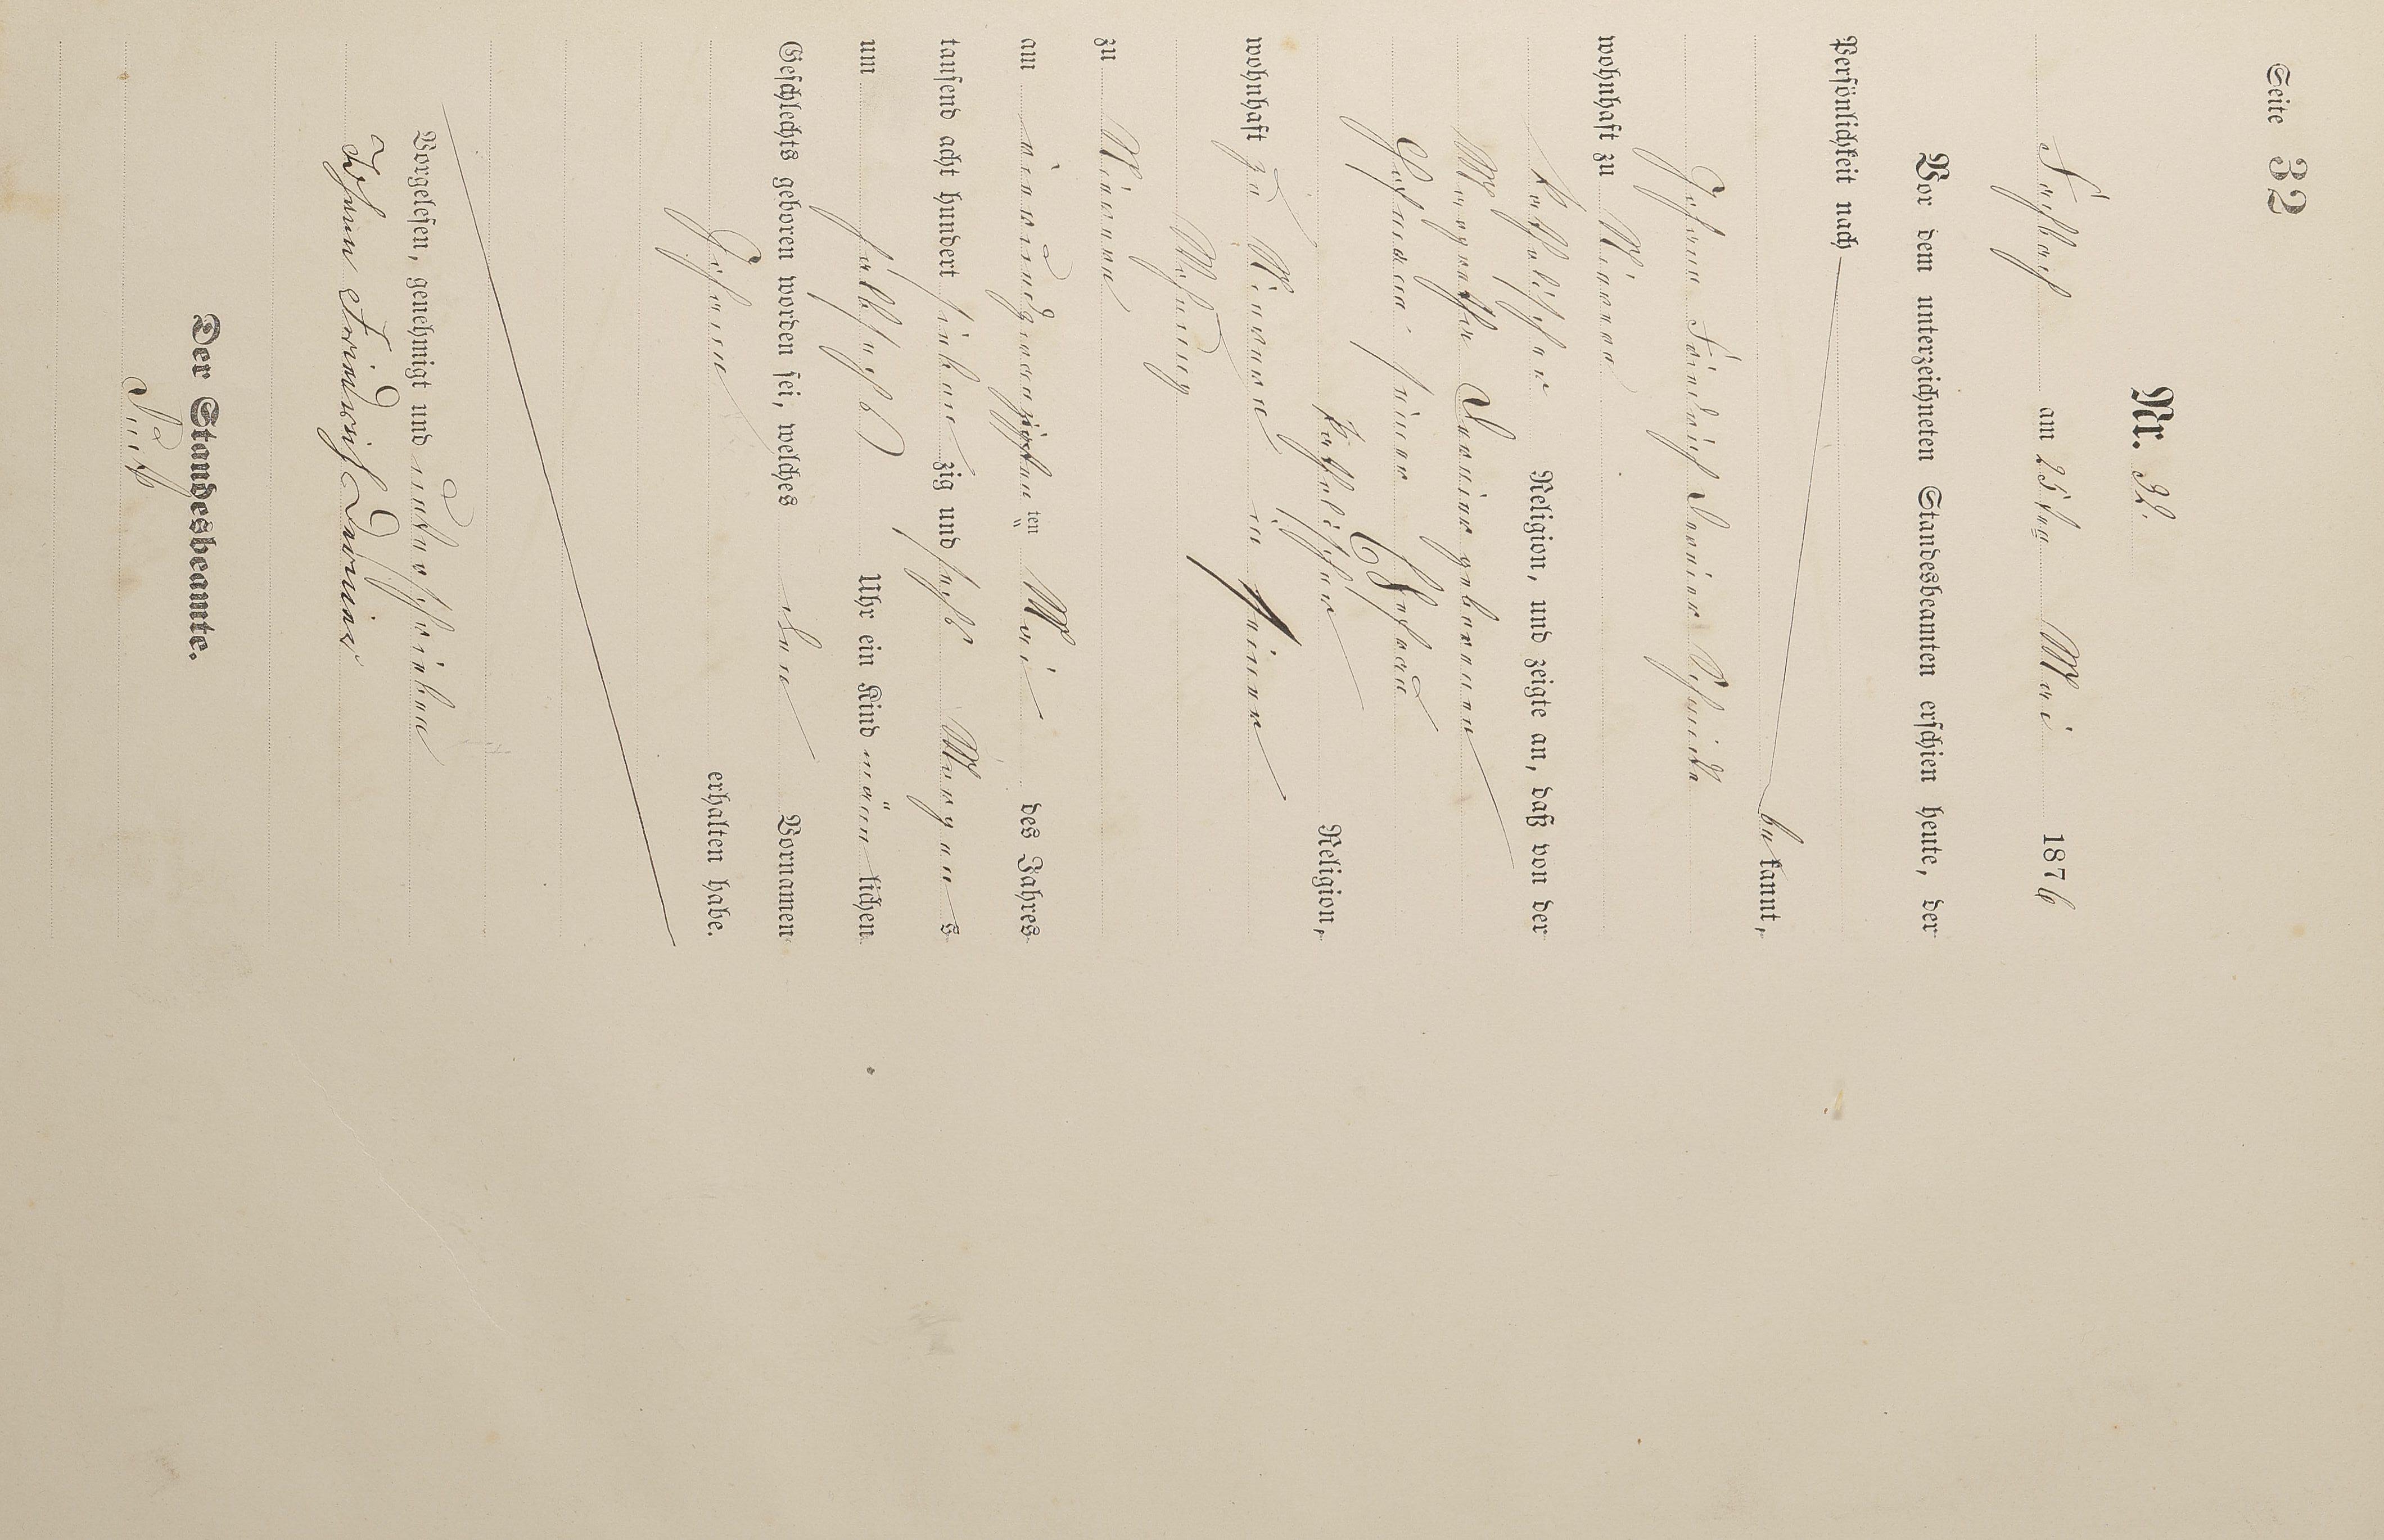 Seite 32
Nr. 32.
Fischbach am 25ten Mai 1876
Vor dem unterzeichneten Standesbeamten erschien heute, der
Persönlichkeit nach
bekannt,
Johann Friedrich
wohnhaft zu
katholischer Religion, und zeigte an, daß von der
Margaretha geborenen
seiner Ehefrau
katholischer Religion,
wohnhaft zu in seiner
Wohnung
zu
am vierundzwanzigsten ten Mai des Jahres
tausend acht hundert sieben zig und sechs Morgens
um halb sechs Uhr ein Kind männ lichen
Geschlechts geboren worden sei, welches den Vornamen
Johann erhalten habe.
Vorgelesen, genehmigt und unterschrieben
Johann Friedrich
Der Standesbeamte.